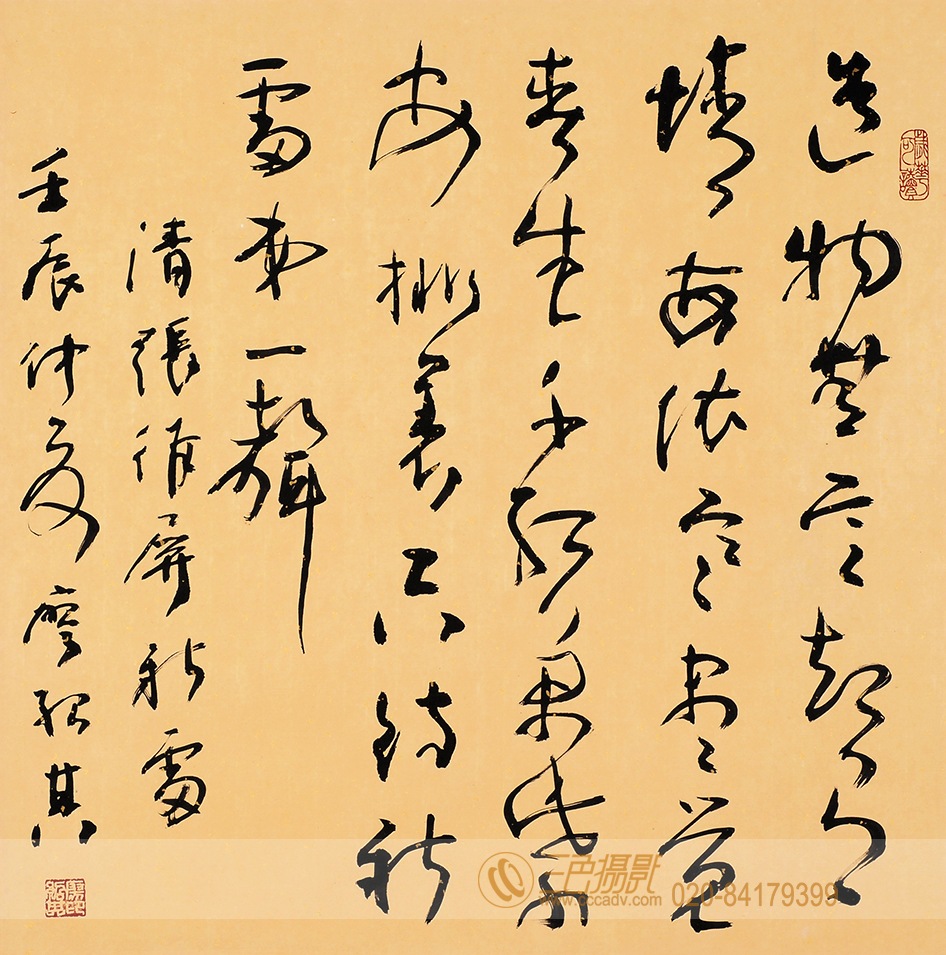 造物無言却有
情每於寒盡覺
春生千紅萬紫
安排著只待新
雷第一聲
清張維屏新雷
壬辰仲夏廖其
三色摄影 020-84179399